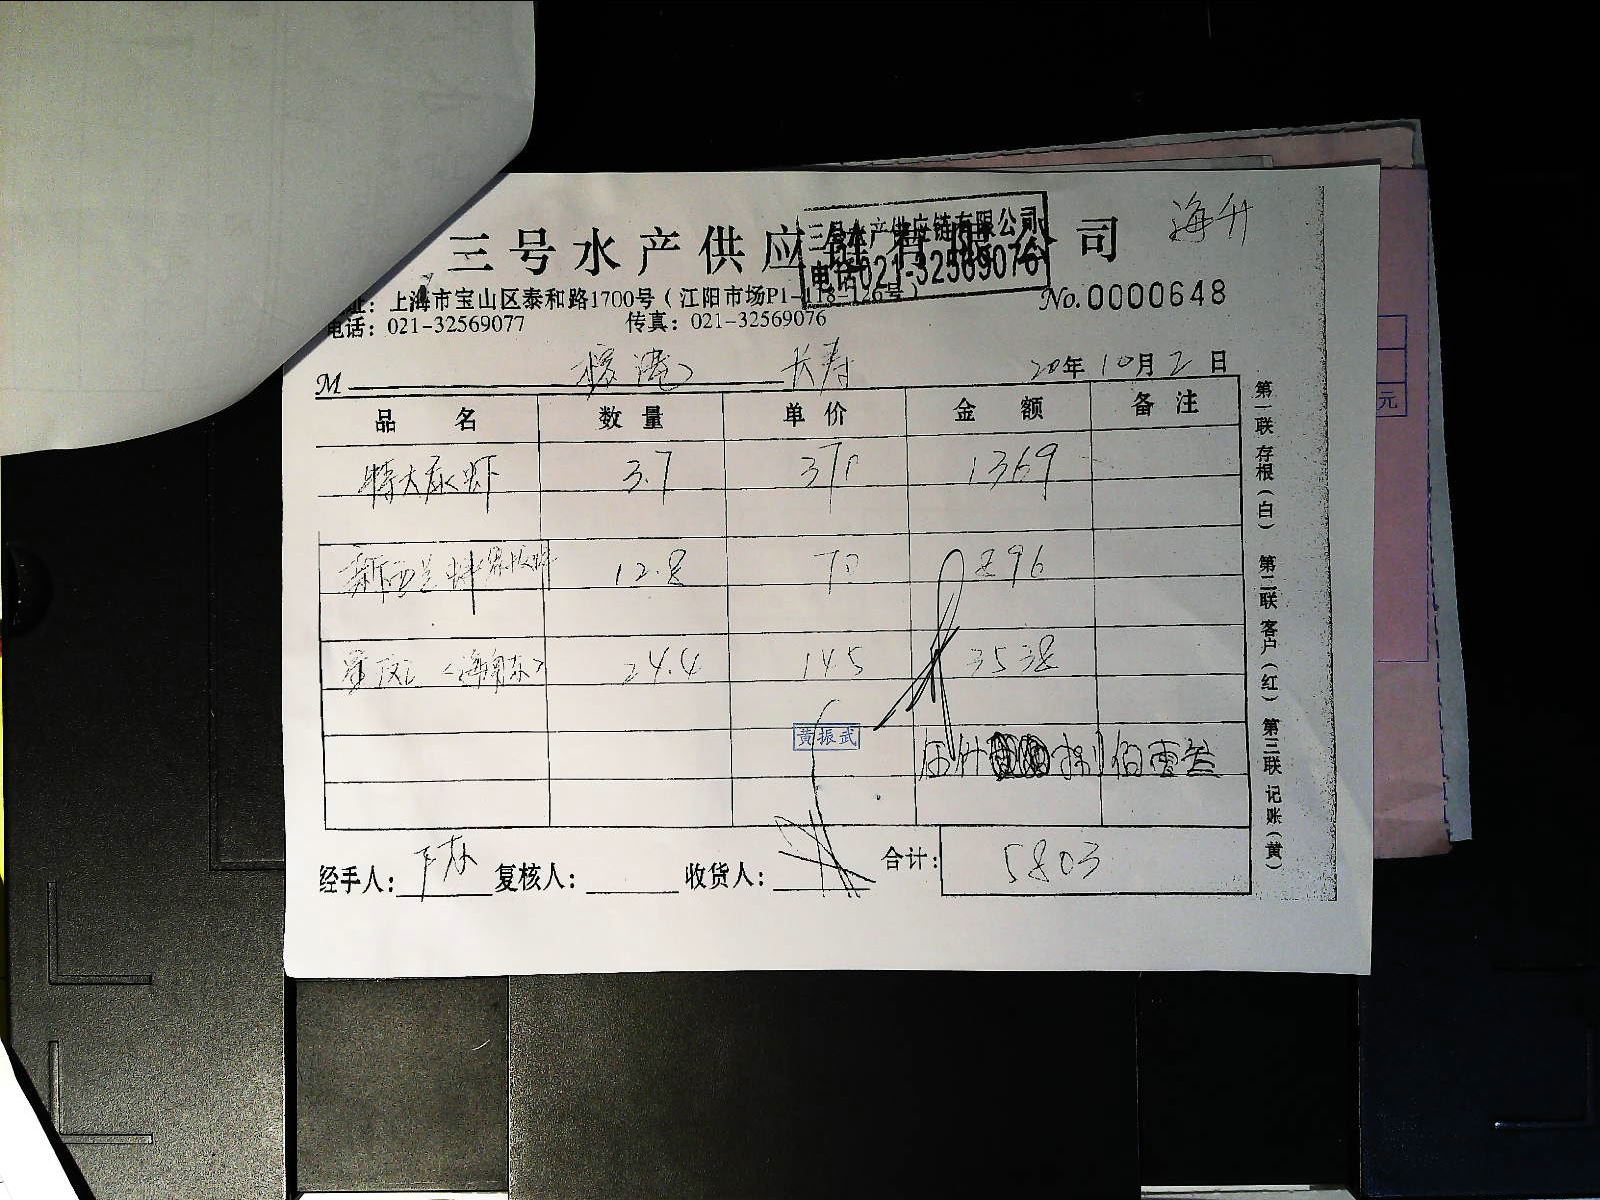 三号水产供应链有限公司
三号水产供应链有限公司
电话021-32569076
海升
址：上海市宝山区泰和路1700号（江阳市场P1-118-126号）
No.0000648
电话：021-32569077 传真：021-32569076
M 长寿 20年10月2日
品名 数量 单价 金额 备注
特大 虾 3.7 370 1369
新西兰 12.8 70 896
24.4 145 3538
黄振武
伍仟 捌佰 叁
经手人： 复核人： 收货人： 合计：5803
第一联 存根（白） 第二联 客户（红） 第三联 记账（黄）
元